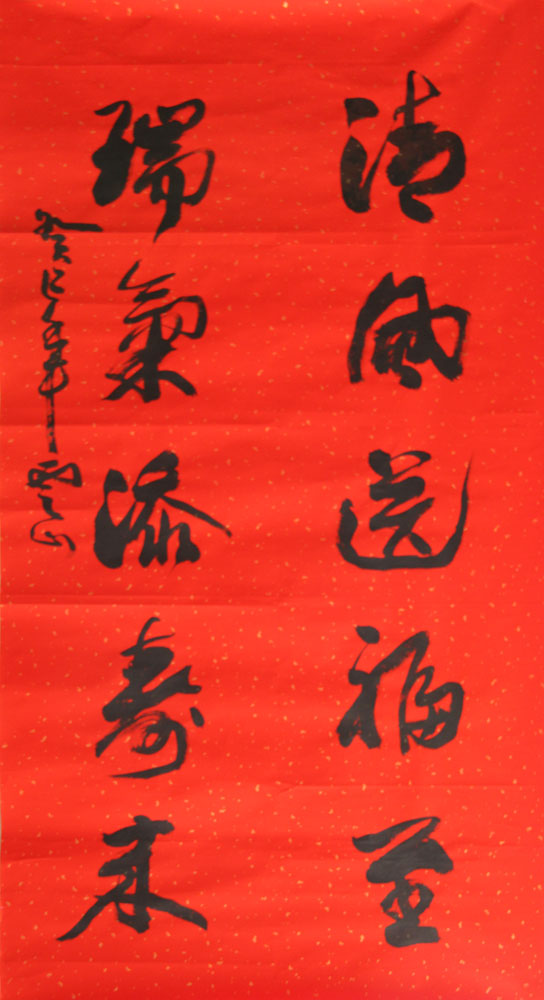 清風送福至
瑞氣添壽来
癸巳年雲山